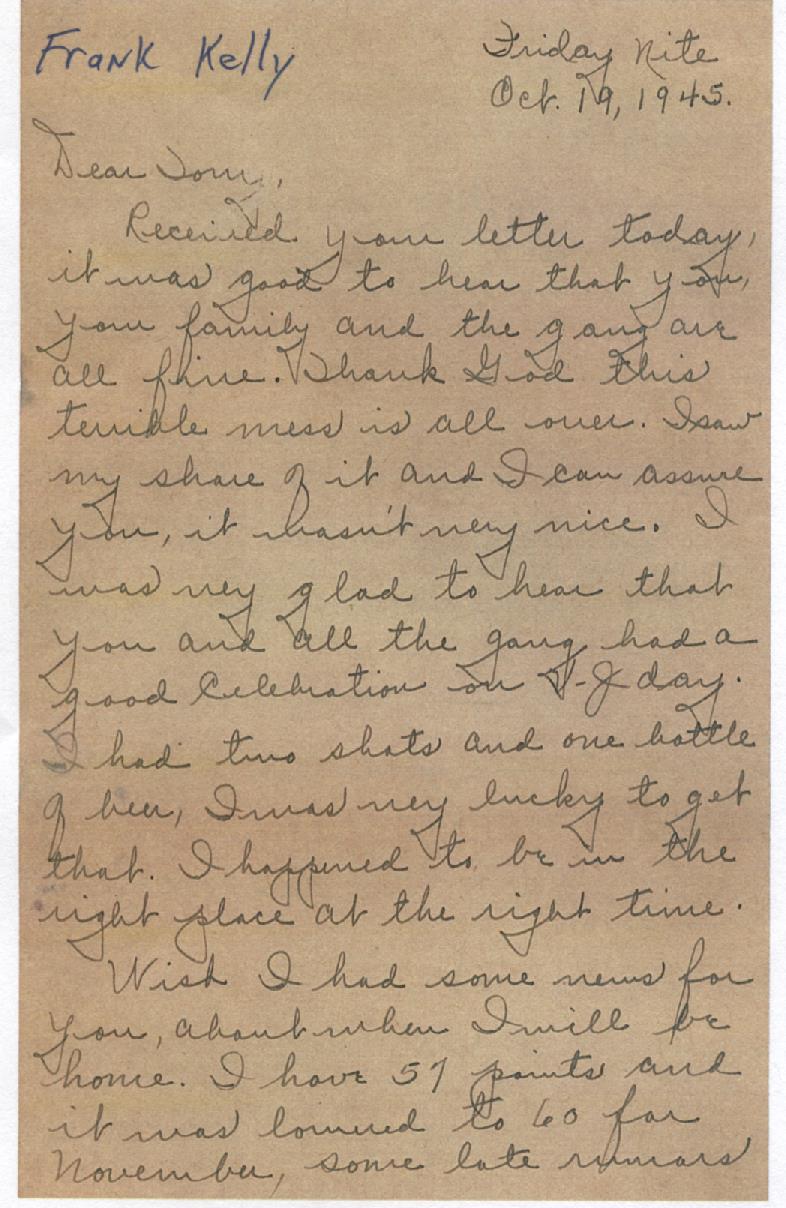 Frank Kelly
Friday Nite
Oct. 19, 1945.
Dear Tom,
Received your letter today,
it was good to hear that you,
your family and the gang are
all fine. Thank God this
terrible mess is all over. I saw
my share of it and I can assure
you, it wasn't very nice. I
was very glad to hear that
you and all the gang had a
good Celebration on V-J day.
I had two shots and one bottle
of beer, I was very lucky to get
that. I happened to be in the
right place at the right time.
Wish I had some news for
you, about when I will be
home. I have 57 points and
it was lowered to 60 for
November, some late rumors